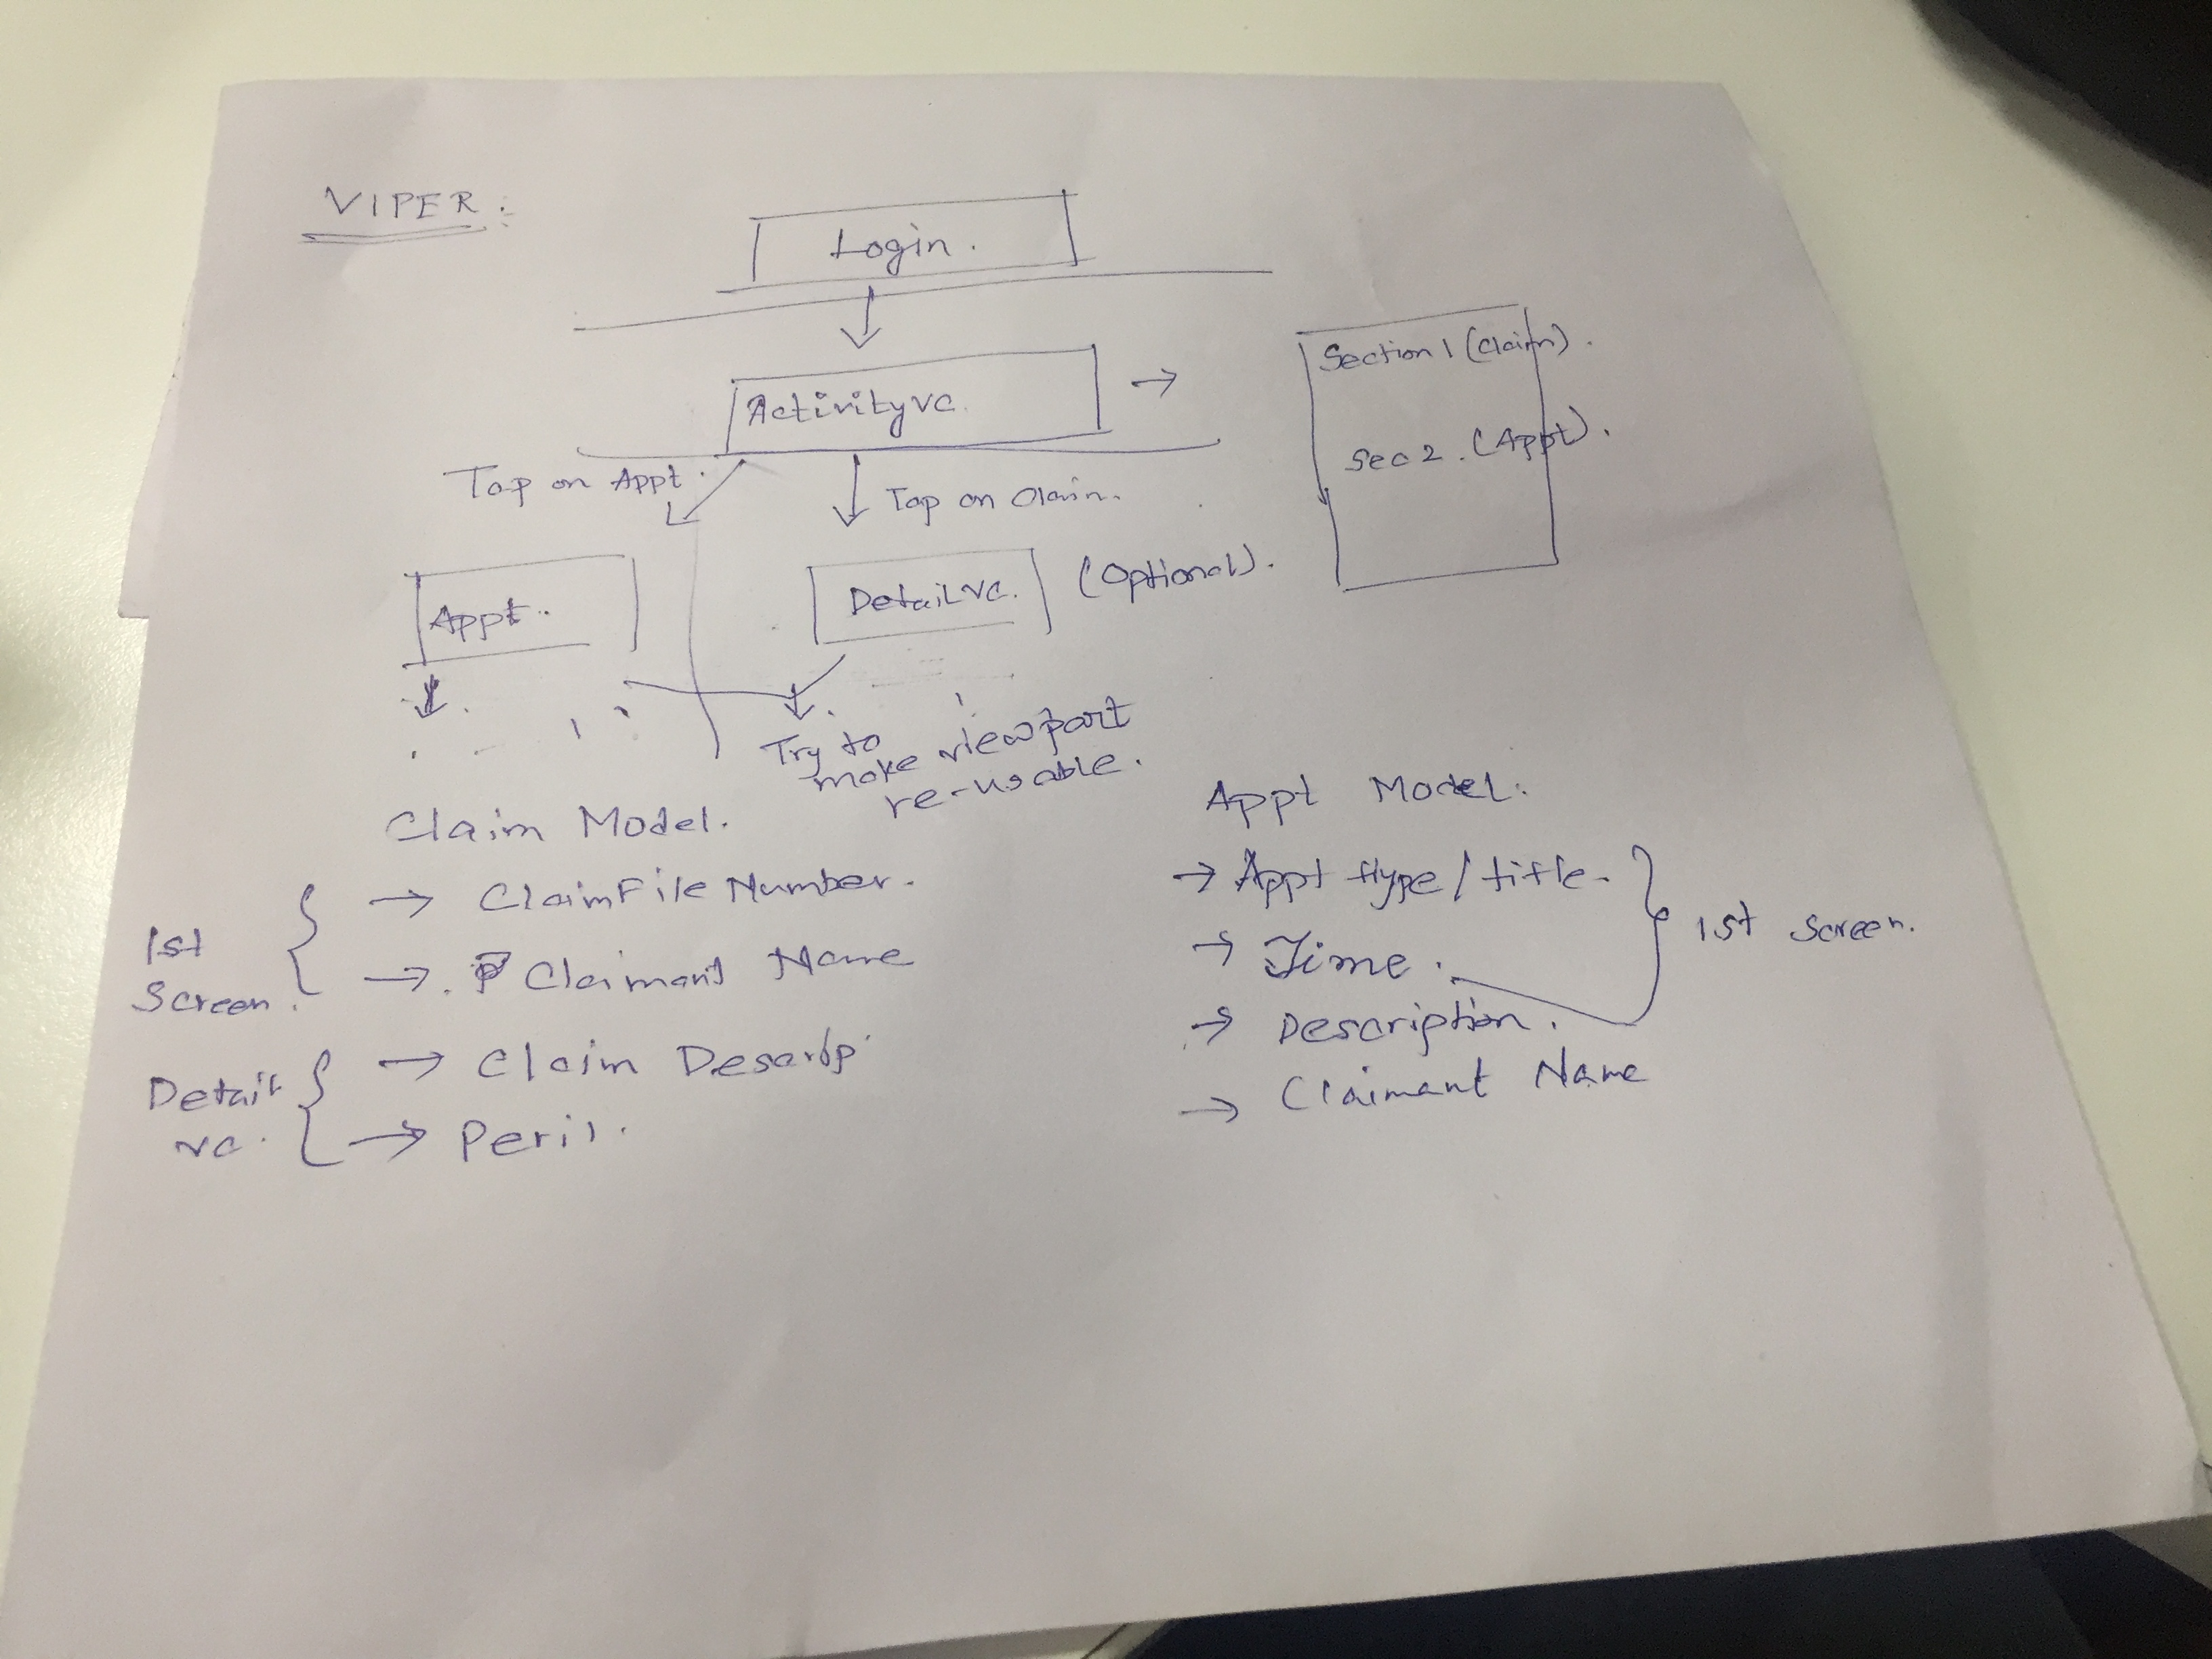 VIPER:
Login.
ActivityVC.
Section 1 (Claim).
Sec 2. (Appt).
Tap on Appt.
Tap on Claim.
Appt.
DetailVC. (Optional).
Try to
make view part
re-usable.
Claim Model.
1st
Screen.
→ ClaimFileNumber.
→ Claimant Name
Detail
VC.
→ Claim Descrip
→ Peril.
Appt Model:
→ Appt type/title.
→ Time.
1st Screen.
→ Description.
→ Claimant Name